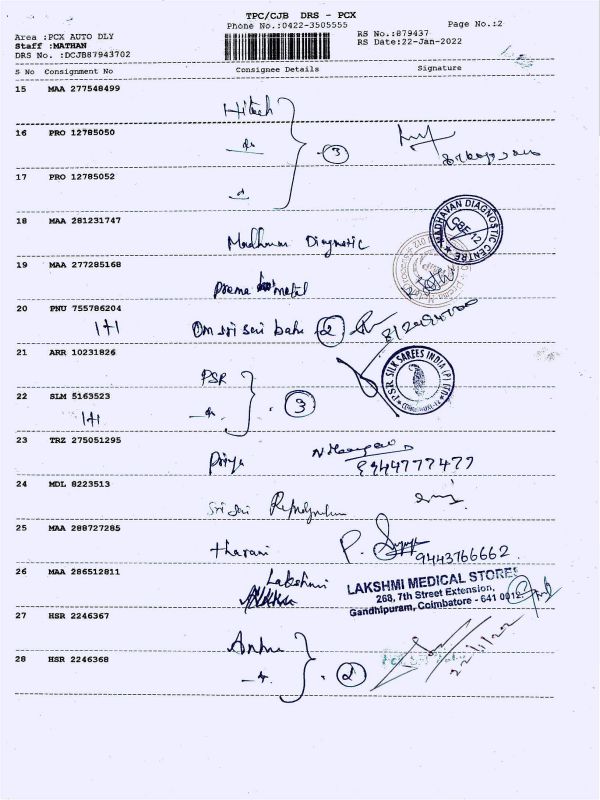 TPC/CJB DRS - PCX
Phone No.:0422-3505555
Page No.:2
Area :PCX AUTO DLY
RS No.:879437
Staff :MATHAN
RS Date:22-Jan-2022
DRS No. :DCJB87943702
S No Consignment No Consignee Details Signature
15 MAA 277548499
Hitech
16 PRO 12785050
3
17 PRO 12785052
18 MAA 281231747
Madhavan Diagnostic
MADHAVAN DIAGNOSTIC CENTRE
CBE-12
19 MAA 277285168
metal
20 PNU 755786204
1+1 Om sri sai baba 2
21 ARR 10231826
PSR
PSR SILK SAREES INDIA (P) LTD
22 SLM 5163523
1+1
3
23 TRZ 275051295
Priya
9944777477
24 MDL 8223513
Sri Sai
25 MAA 288727285
tharani P.
9443766662
26 MAA 286512811
Lakshmi
LAKSHMI MEDICAL STORES
268, 7th Street Extension,
Gandhipuram, Coimbatore - 641 0012.
27 HSR 2246367
28 HSR 2246368
2
22/1/22